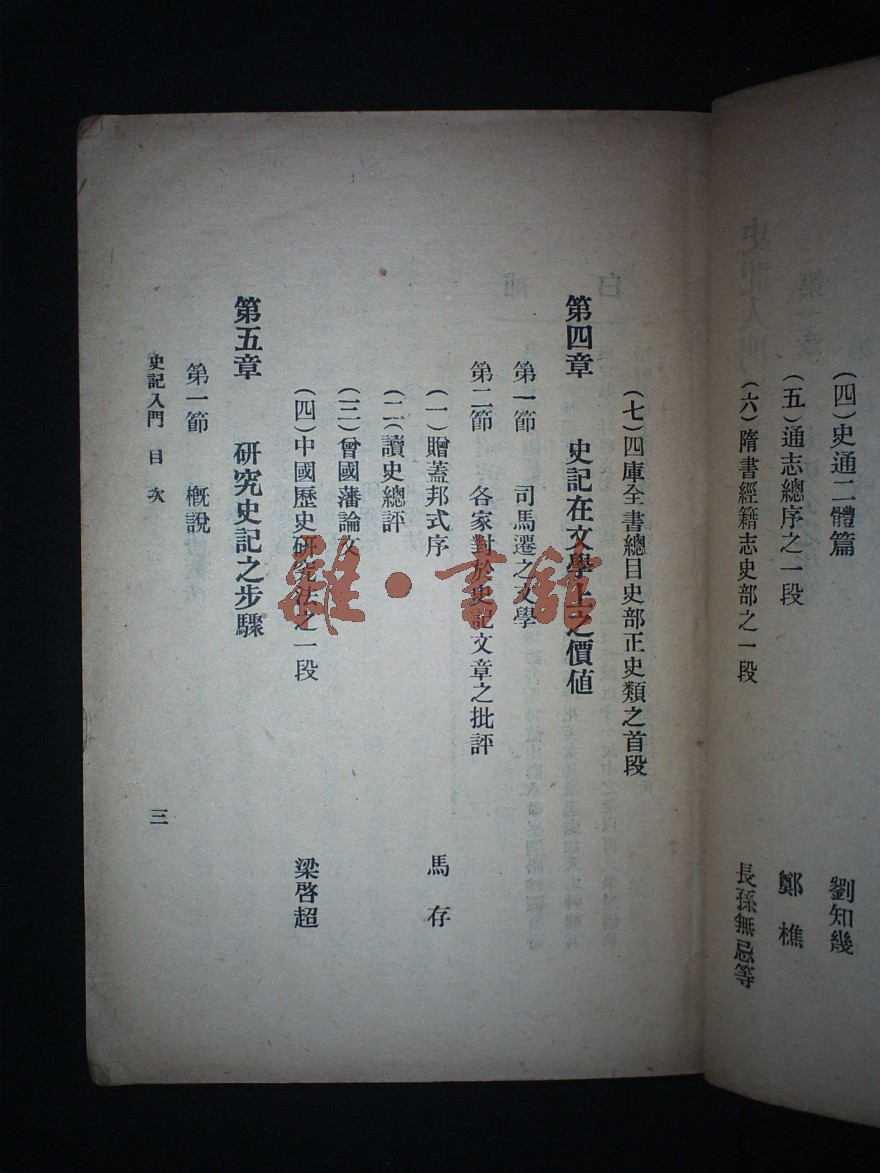 (四)史通二體篇 劉知幾
(五)通志總序之一段 鄭樵
(六)隋書經籍志史部之一段 長孫無忌等
(七)四庫全書總目史部正史類之首段
第四章 史記在文學上之價値
第一節 司馬遷之文學
第二節 各家對於史記文章之批評
(一)贈蓋邦式序 馬存
(二)讀史總評
(三)曾國藩論文
(四)中國歷史研究法之一段 梁啓超
第五章 研究史記之步驟
第一節 槪說
史記入門 目次 三
雜·書館